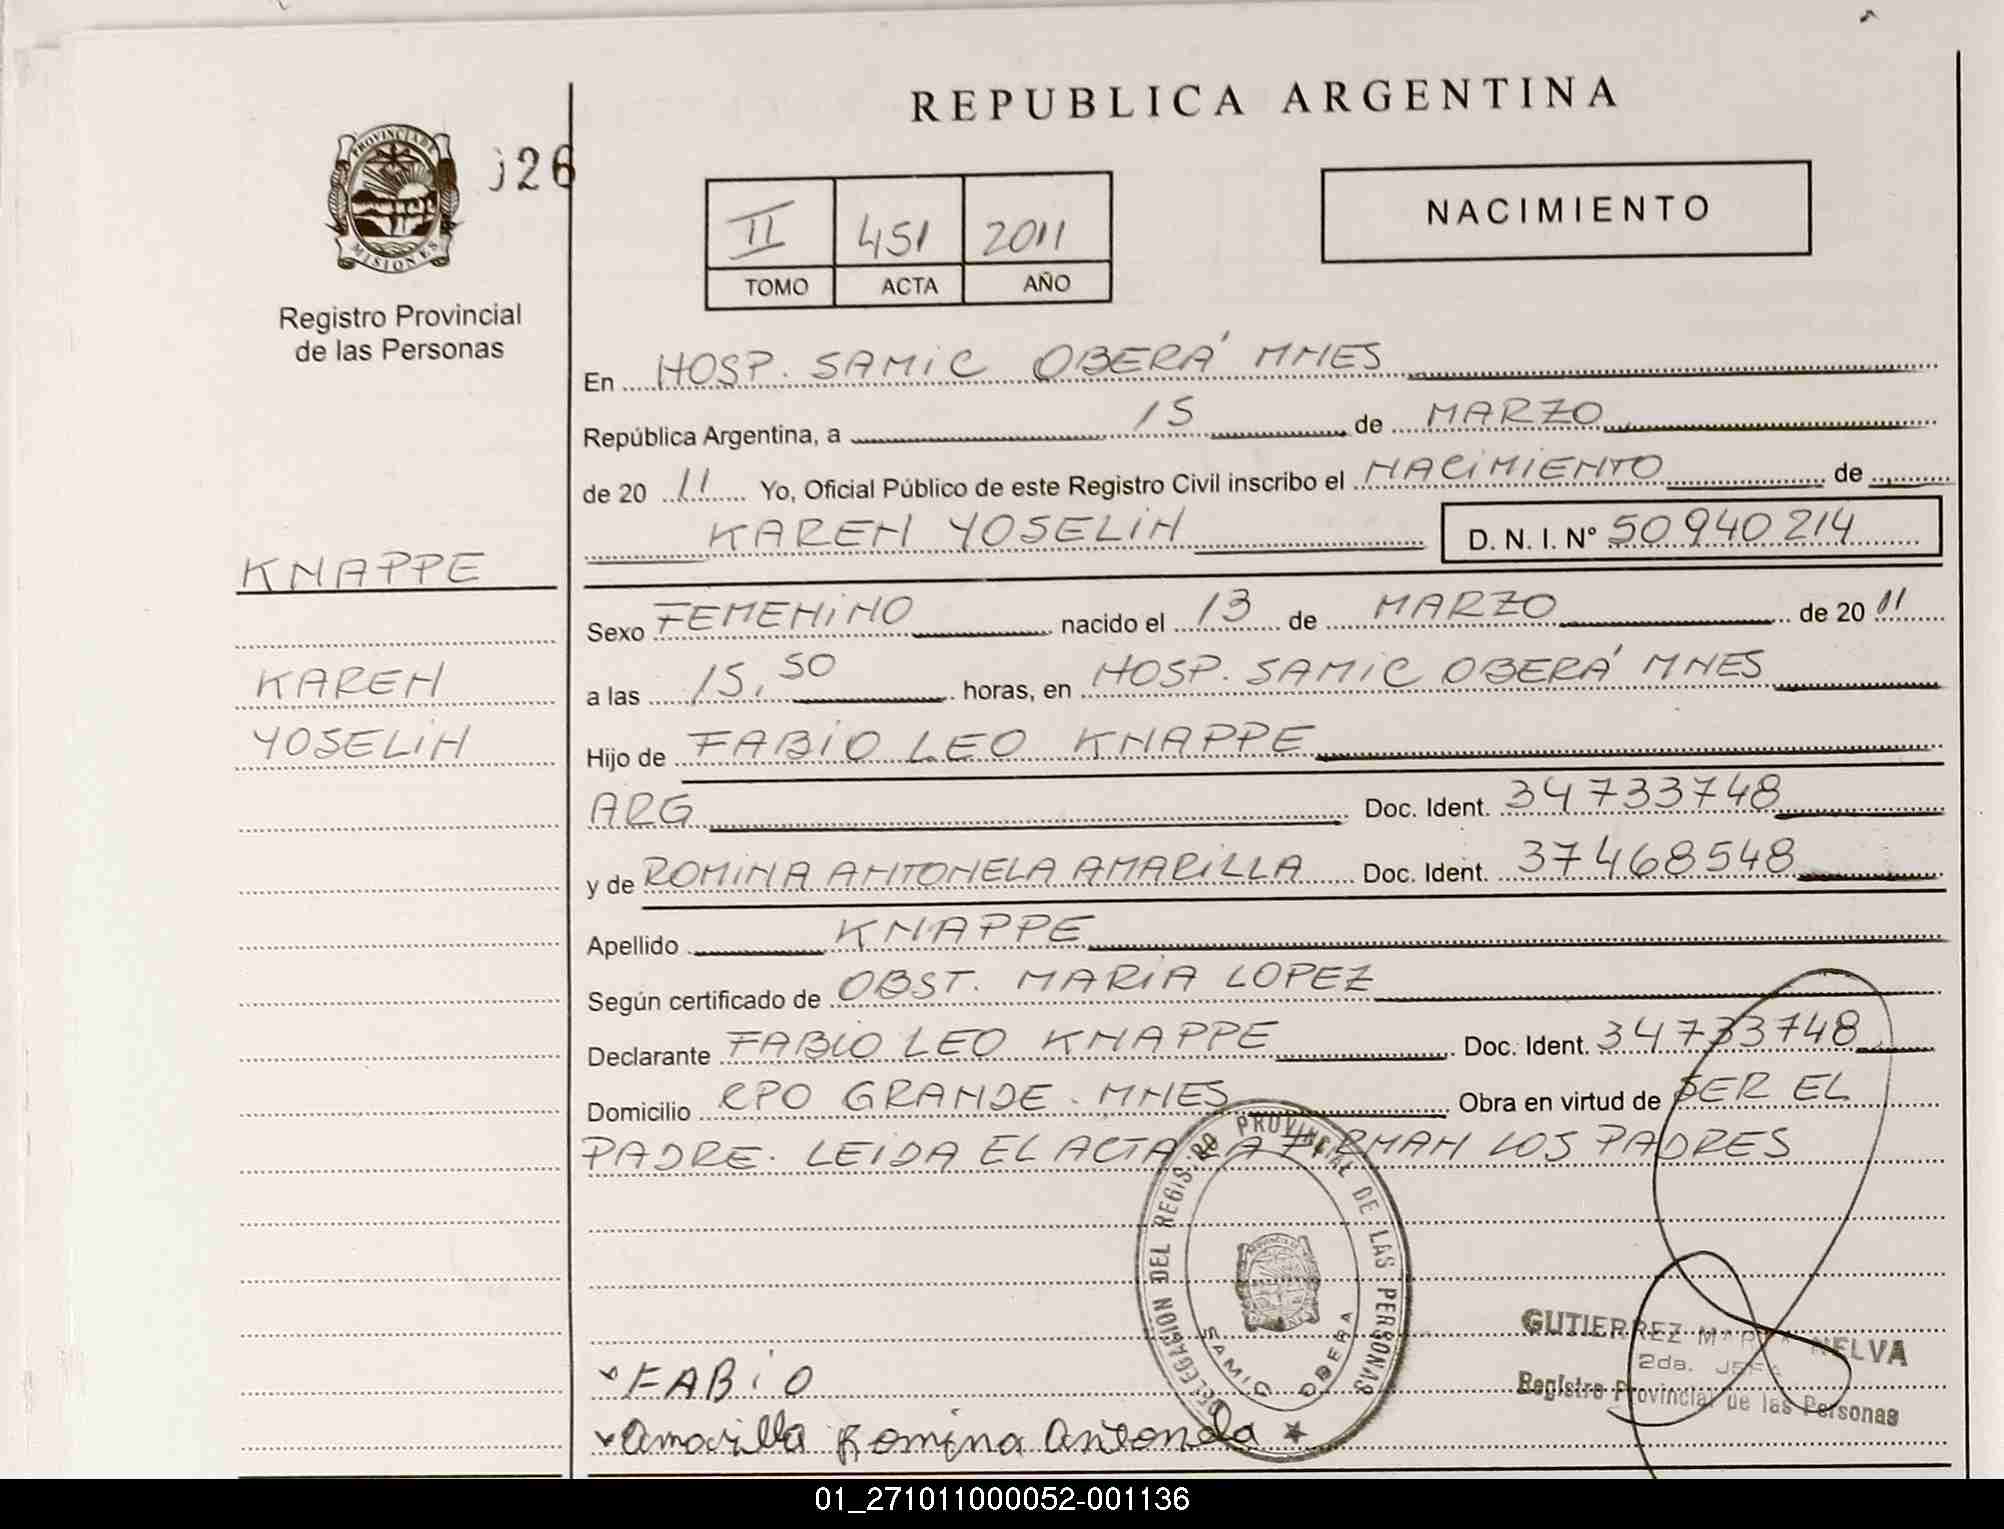 REPUBLICA ARGENTINA
PROVINCIA DE
MISIONES
126
Registro Provincial
de las Personas
II 451 2011
TOMO ACTA AÑO
NACIMIENTO
En HOSP. SAMIC OBERÁ MNES
República Argentina, a 15 de MARZO
de 20 11 Yo, Oficial Público de este Registro Civil inscribo el NACIMIENTO de
KAREN YOSELIN D. N. I. Nº 50.940.214
KNAPPE
Sexo FEMENINO nacido el 13 de MARZO de 20 11
KAREN
a las 15,50 horas, en HOSP. SAMIC OBERÁ MNES
YOSELIN
Hijo de FABIO LEO KNAPPE
ARG Doc. Ident. 34733748
y de ROMINA ANTONELA AMARILLA Doc. Ident. 37468548
Apellido KNAPPE
Según certificado de OBST. MARIA LOPEZ
Declarante FABIO LEO KNAPPE Doc. Ident. 34733748
Domicilio CPO GRANDE. MNES Obra en virtud de SER EL
PADRE. LEIDA EL ACTA LA FIRMAN LOS PADRES
DELEGACION DEL REGISTRO PROVINCIAL DE LAS PERSONAS
SAMIC OBERA
GUTIERREZ MARTA NELVA
2da. JEFA
Registro Provincial de las Personas
FABIO
Amarilla Romina Antonela
01_271011000052-001136